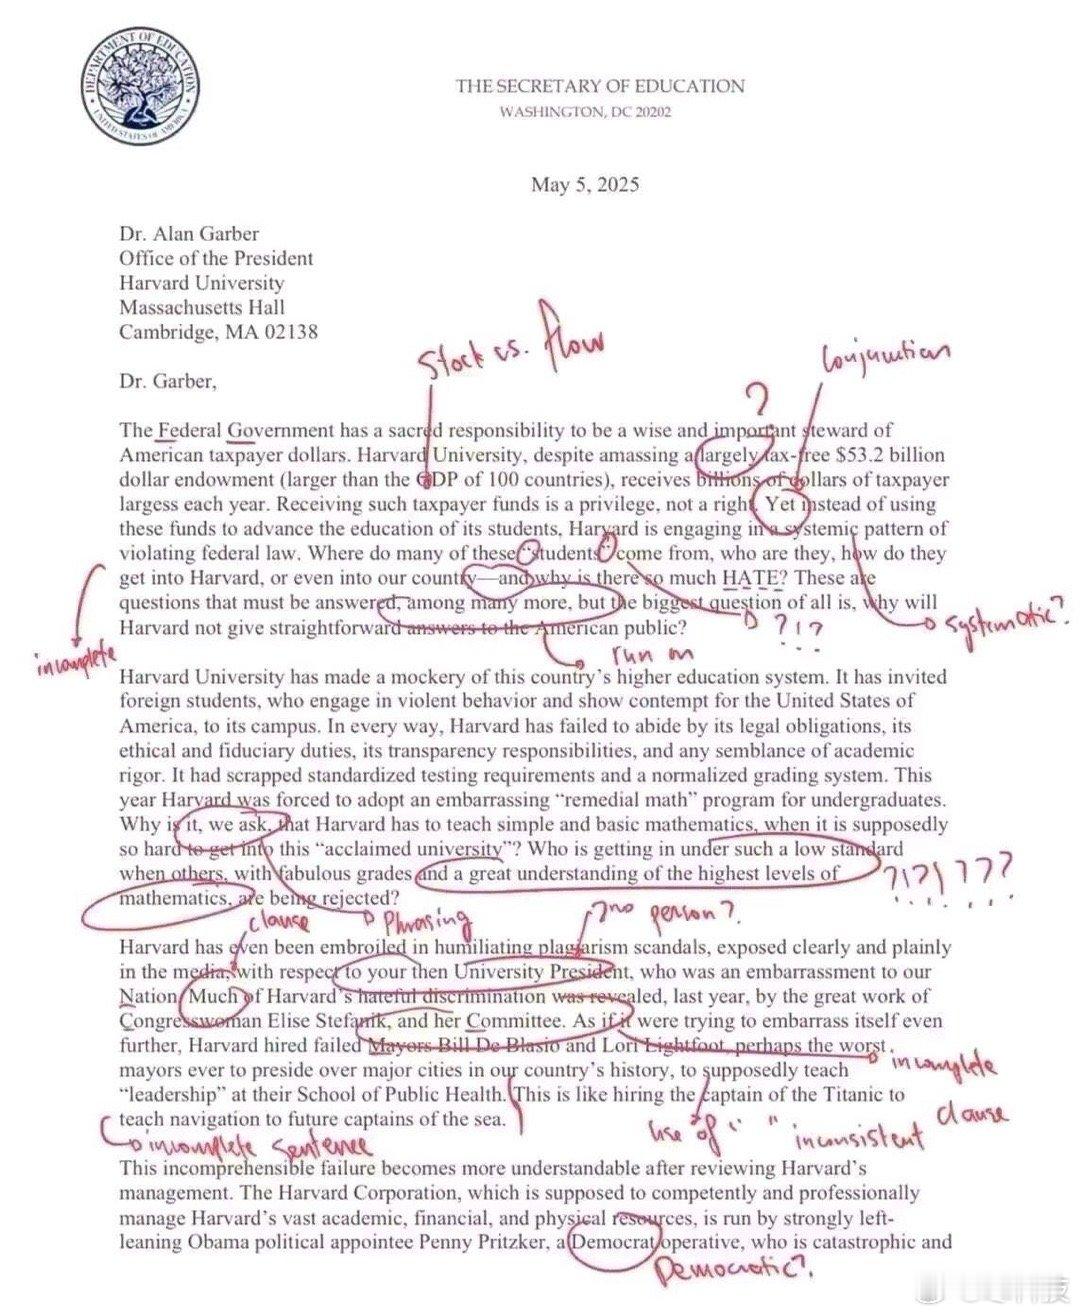 DEPARTMENT OF EDUCATION
UNITED STATES OF AMERICA
THE SECRETARY OF EDUCATION
WASHINGTON, DC 20202
May 5, 2025
Dr. Alan Garber
Office of the President
Harvard University
Massachusetts Hall
Cambridge, MA 02138
Stock vs. flow
Conjunction
Dr. Garber,
?
The Federal Government has a sacred responsibility to be a wise and important steward of
American taxpayer dollars. Harvard University, despite amassing a largely tax-free $53.2 billion
dollar endowment (larger than the GDP of 100 countries), receives billions of dollars of taxpayer
largess each year. Receiving such taxpayer funds is a privilege, not a right. Yet instead of using
these funds to advance the education of its students, Harvard is engaging in a systemic pattern of
violating federal law. Where do many of these “students” come from, who are they, how do they
get into Harvard, or even into our country—and why is there so much HATE? These are
questions that must be answered, among many more, but the biggest question of all is, why will
Harvard not give straightforward answers to the American public?
?!?
systematic?
incomplete
run on
Harvard University has made a mockery of this country’s higher education system. It has invited
foreign students, who engage in violent behavior and show contempt for the United States of
America, to its campus. In every way, Harvard has failed to abide by its legal obligations, its
ethical and fiduciary duties, its transparency responsibilities, and any semblance of academic
rigor. It had scrapped standardized testing requirements and a normalized grading system. This
year Harvard was forced to adopt an embarrassing “remedial math” program for undergraduates.
Why is it, we ask, that Harvard has to teach simple and basic mathematics, when it is supposedly
so hard to get into this “acclaimed university”? Who is getting in under such a low standard
when others, with fabulous grades and a great understanding of the highest levels of
mathematics, are being rejected?
?!?!???
clause
Phrasing
2nd person?
Harvard has even been embroiled in humiliating plagiarism scandals, exposed clearly and plainly
in the media, with respect to your then University President, who was an embarrassment to our
Nation. Much of Harvard’s hateful discrimination was revealed, last year, by the great work of
Congresswoman Elise Stefanik, and her Committee. As if it were trying to embarrass itself even
further, Harvard hired failed Mayors Bill De Blasio and Lori Lightfoot, perhaps the worst
mayors ever to preside over major cities in our country’s history, to supposedly teach
“leadership” at their School of Public Health. This is like hiring the captain of the Titanic to
teach navigation to future captains of the sea.
incomplete
clause
incomplete sentence
use of " " inconsistent
This incomprehensible failure becomes more understandable after reviewing Harvard’s
management. The Harvard Corporation, which is supposed to competently and professionally
manage Harvard’s vast academic, financial, and physical resources, is run by strongly left-
leaning Obama political appointee Penny Pritzker, a Democrat operative, who is catastrophic and
Democratic?